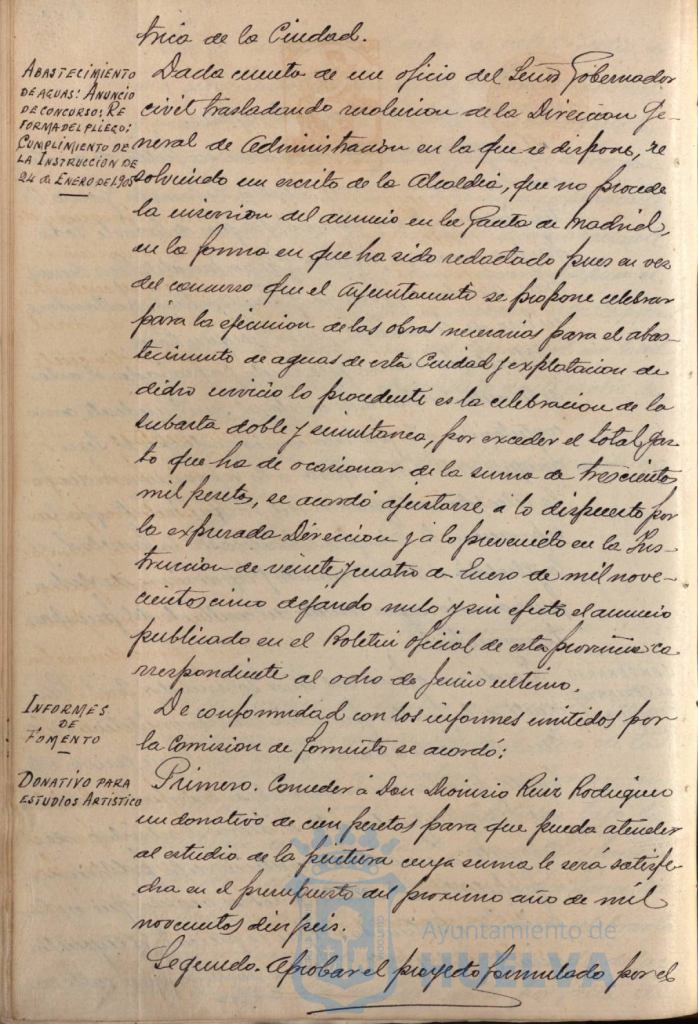 trica de la Ciudad.
ABASTECIMIENTO
DE AGUAS: ANUNCIO
DE CONCURSO: RE
FORMA DEL PLIEGO:
CUMPLIMIENTO DE
LA INSTRUCCION DE
24 de ENERO DE 1905
Dada cuenta de un oficio del Señor Gobernador
civil trasladando resolucion de la Direccion Ge-
neral de Administracion en la que se dispone, re
solviendo un escrito de la Alcaldia, que no procede
la insercion del anuncio en la Gaceta de Madrid,
en la forma en que ha sido redactado pues en vez
del concurso que el Ayuntamiento se propone celebrar
para la ejecucion de las obras necesarias para el abas-
tecimiento de aguas de esta Ciudad y explotacion de
dicho servicio lo procedente es la celebracion de la
subasta doble y simultanea, por exceder el total gas-
to que ha de ocasionar de la suma de trescientas
mil pesetas, se acordó ajustarse á lo dispuesto por
la expresada Direccion y á lo prevenido en la Ins-
truccion de veinte y cuatro de Enero de mil nove-
cientos cinco dejando nulo y sin efecto el anuncio
publicado en el Boletin oficial de esta provincia co
rrespondiente al ocho de Junio ultimo.
INFORMES
DE
FOMENTO
De conformidad con los informes emitidos por
la Comision de Fomento se acordó:
DONATIVO PARA
ESTUDIOS ARTÍSTICO
Primero. Conceder á Don Dionisio Ruiz Rodriguez
un donativo de cien pesetas para que pueda atender
al estudio de la pintura cuya suma le será satisfe-
cha en el presupuesto del proximo año de mil
novecientos diez y seis.
Segundo. Aprobar el proyecto formulado por el
Ayuntamiento de
HUELVA